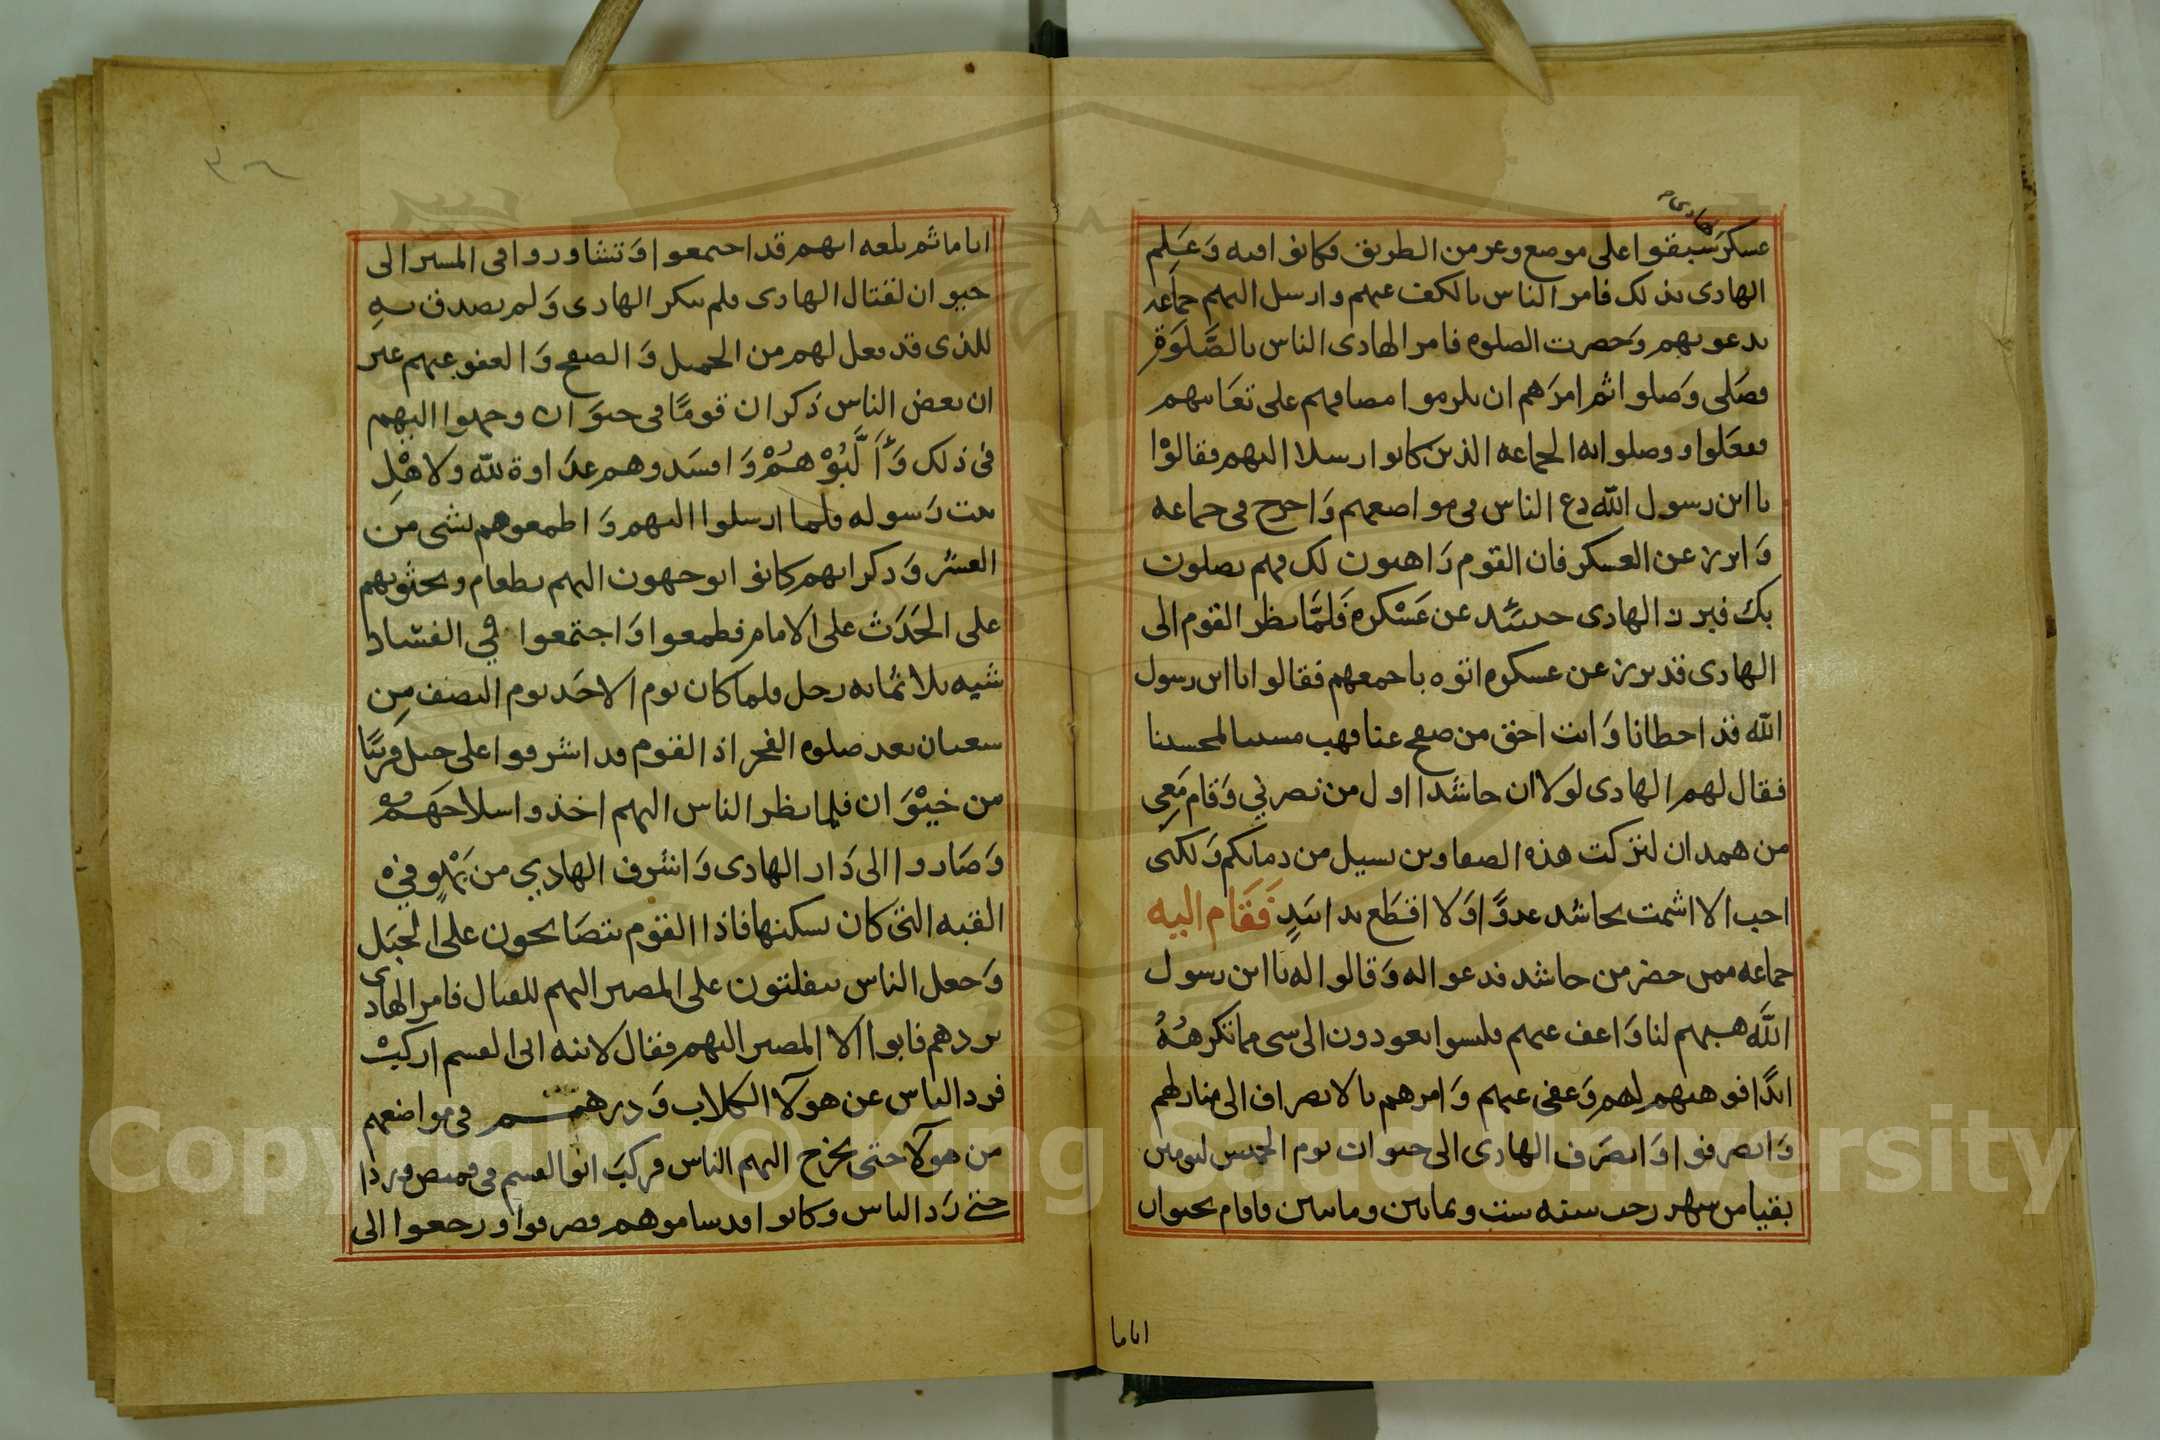 الهادى صح
عسكر سبقوا على موضع وعر من الطريق فكانوا فيه وَعَلِم
الهادى بذلك فامر الناس بالكف عنهم وارسل اليهم جماعه
يدعونهم وَحضرت الصلوه فامر الهادى الناس بالصَّلَوَة
فصَلى وَصلوا ثم امرَهم ان يلزموا مصافهم على تعَابيهم
ففعَلوا ووصلوا اليه الجماعه الذين كانوا ارسلا اليهم فقالوْا
يا ابن رسول الله دع الناس فى مواضعهم وَاخرج فى جماعه
وَابرز عن العسكر فان القوم رَاهبون لك فهم يصلون
بك فبرز الهادى حينئذ عن عَسْكره فَلمَّا نظر القوم الى
الهادى قد برز عن عسكره اتوه باجمعهم فقالوا يا ابن رسول
الله قد اخطانا وَانت احق من صفح عنا فهب مسيئنا لمحسننا
فقال لهم الهادى لولا ان حاشدا اول من نصرني وَقام مَعِى
من همدان لتركت هذه الصفا وبن تسيل من دمائكم وَلكنى
احب الا اشمت بحاشد عدوًّا وَلا اقطَع يدا بيَدٍ فَقَام اليه
جماعه ممن حضر من حاشد فدعوا له وَقالوا له يا ابن رسول
اللَّه هبهم لنا وَاعف عنهم فليسوا يعودون الى شى مما تكرههُ
ابدًا فوهبهم لهم وَعفى عنهم وَامرهم بالانصراف الى منازلهم
وَانصرفوا وَانصَرَف الهادى الى خيوان يوم الخميس ليومين
بقيا من شهر رجب سنه ست وثمانين ومائتين فاقام بخيوان
اياما
٣٦
اياما ثم بلغه انهم قد اجتمعوا وَتشاوروا فى المسير الى
خيوان لقتال الهادى فلم ينكر الهادى وَلم يصدق بهِ
للذى قد فعل لهم من الجميل وَالصفح وَالعفو عنهم غير
ان بعض الناس ذكر ان قومًا فى خيوَان وجهوا اليهم
فى ذلك وَأَلَّبُوْهُمْ وَافسَدوهم عدَاوة لله ولاهْلِ
بيت رَسوله فلما ارسلوا اليهم وَاطمعوهم بشى من
العشر وَذكر انهم كانوا يوجهون اليهم بطعام ويحثونهم
على الحَدَث على الامام فطمعوا وَاجتمعوا فِي الفسَاد
شبيه بثلاثمائه رجل فلما كان يوم الاحَد يوم النصف مِن
شعبان بعد صلوه الفجر اذ القوم قد اشرفوا على جبل قريبًا
من خيْوَان فلما نظر الناس اليهم اخذوا سلاحَهمْ
وَصَاروا الى دَار الهادى وَاشرف الهادي من بَهْوٍ فى
القبه التى كان يسكنها فاذا القوم يتصَايحون على الجبَل
وَجعل الناس يتفلتون على المصير اليهم للقتال فامر الهادى
بردهم فابوا الا المصير اليهم فقال لابنه ابى القسم اركبْ
فرد الناس عن هولآ الكلاب وَذرهم فى مواضعهم
من هولآ حتى يخرج اليهم الناس فركبَ ابو القسم فى قميص وردا
حتى رَد الناس وكانوا قد ساموهم فصرفوا ورجعوا الى